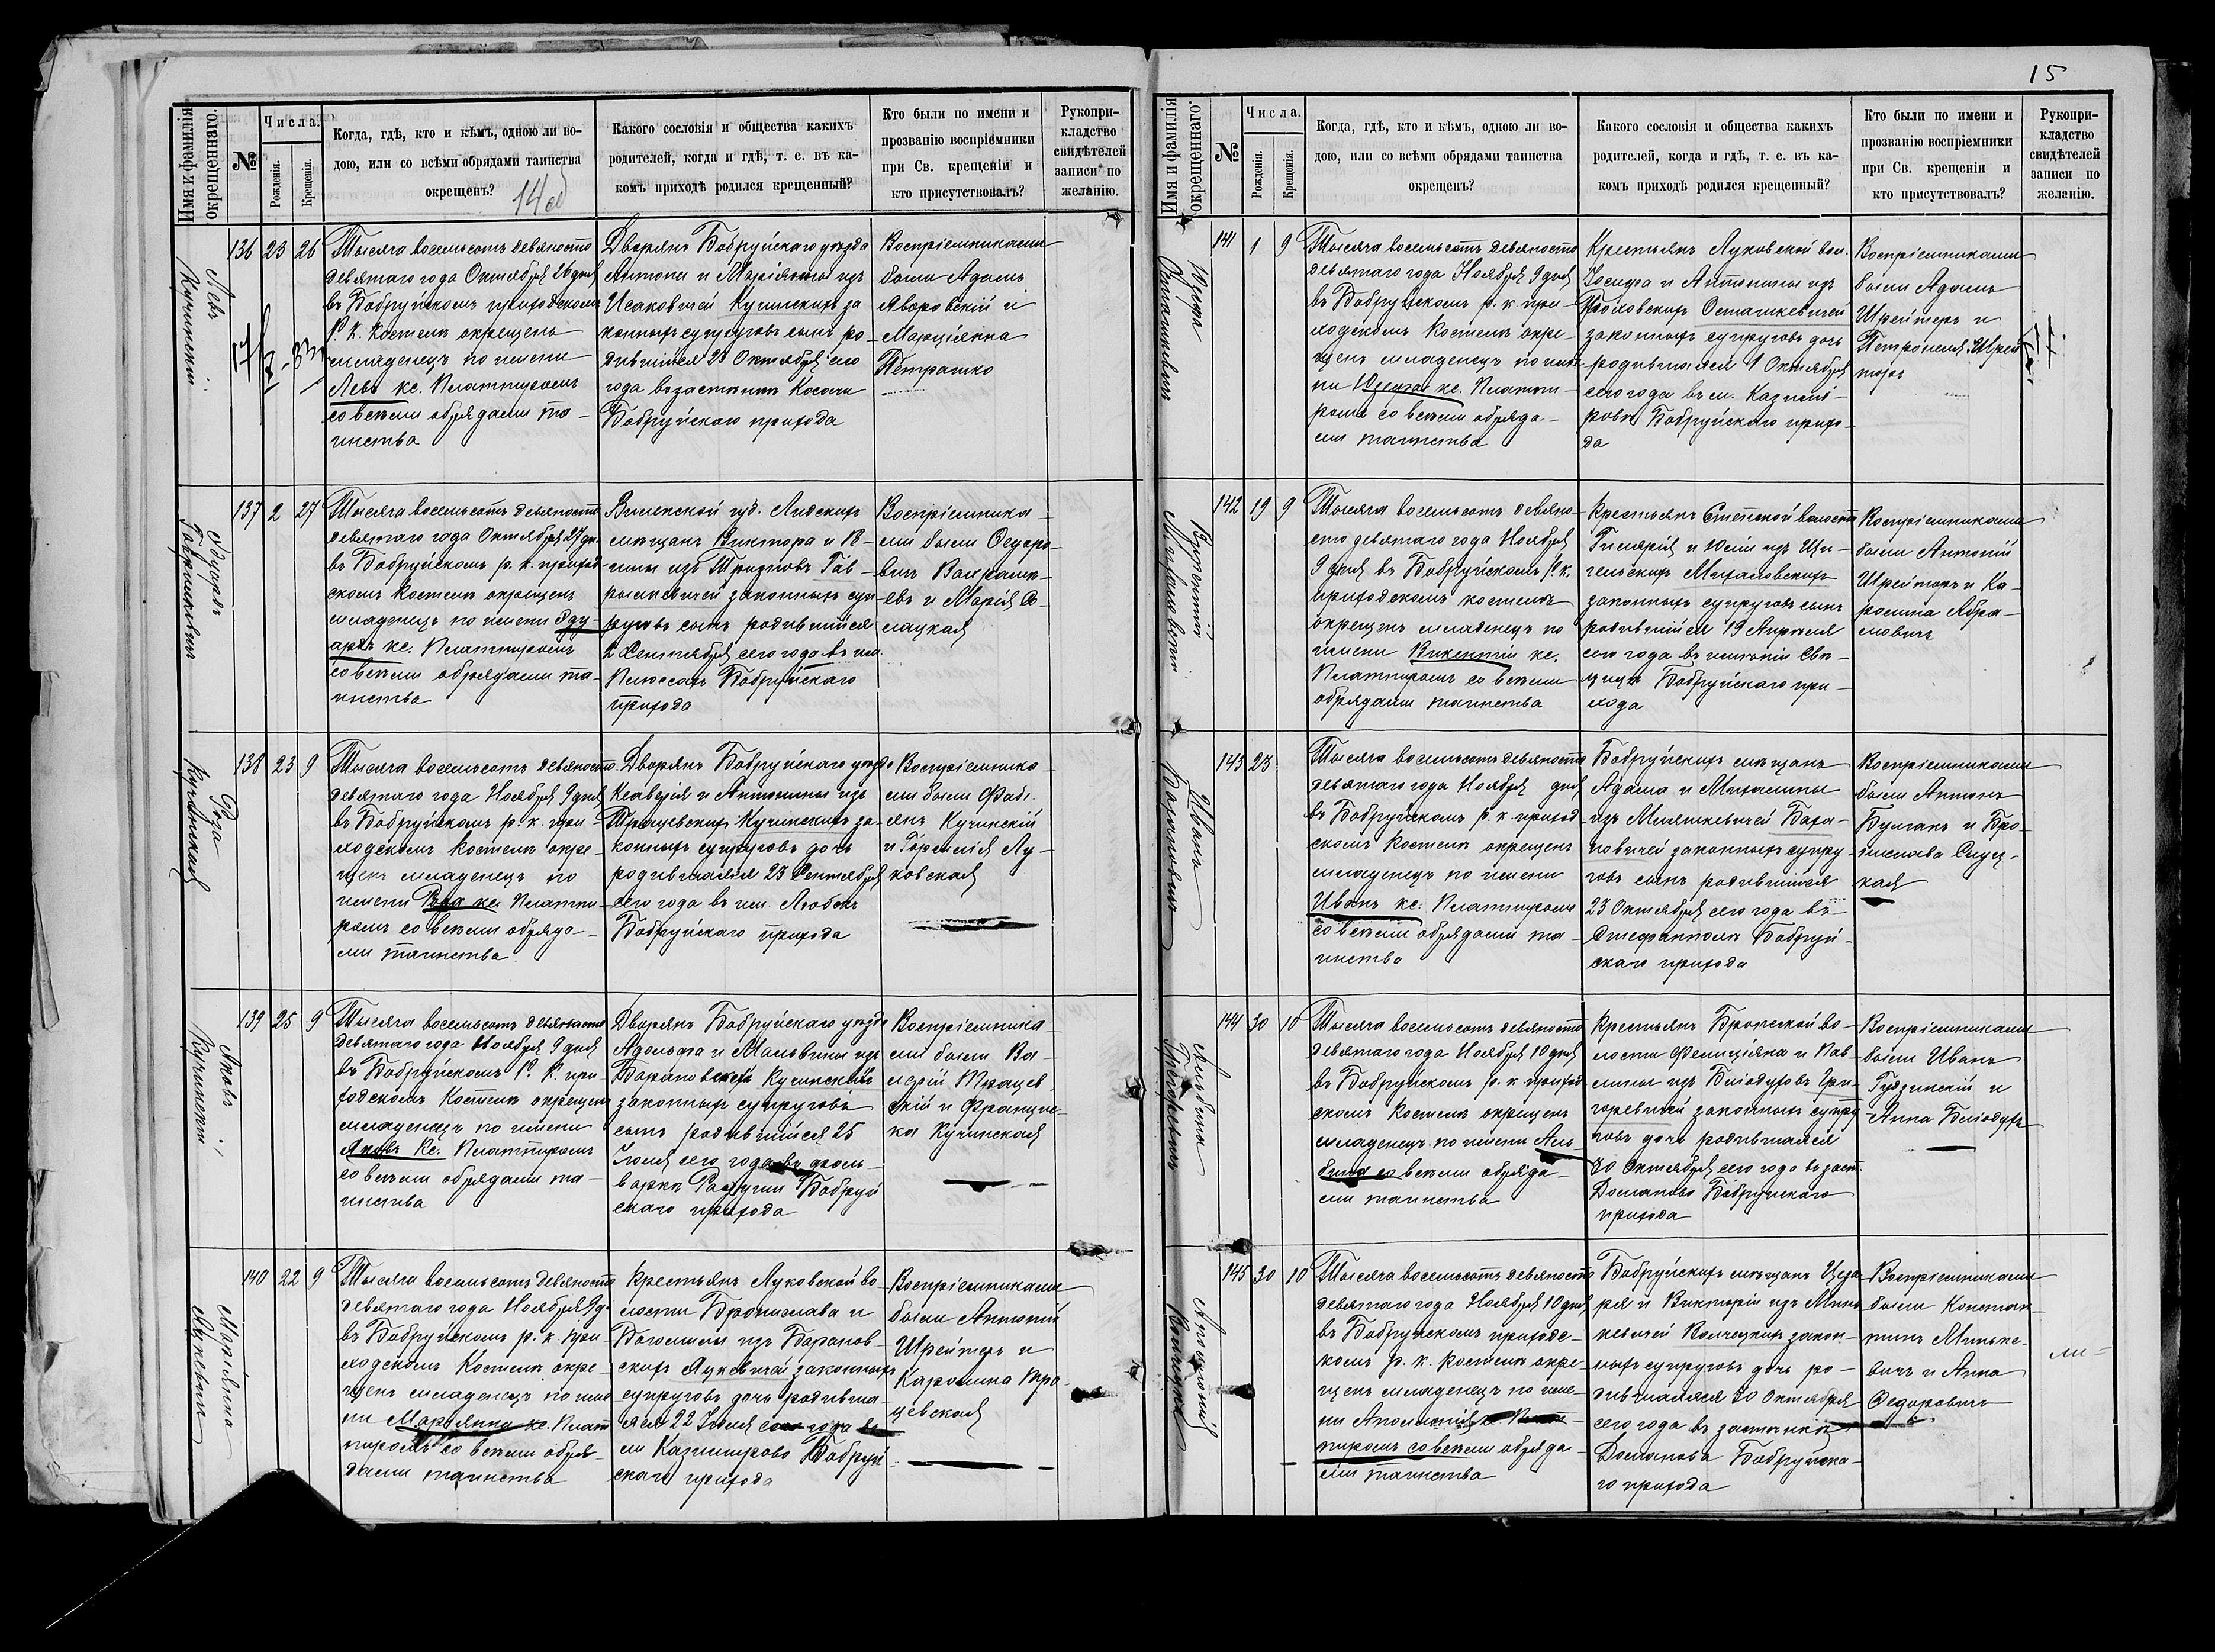 15
Имя и фамилія
окрещеннаго.
№
Числа.
Рожденія.
Крещенія.
Когда, гдѣ, кто и кѣмъ, одною ли во-
дою, или со всѣми обрядами таинства
окрещенъ?
Какого сословія и общества какихъ
родителей, когда и гдѣ, т. е. въ ка-
комъ приходѣ родился крещенный?
Кто были по имени и
прозванію воспріемники
при Св. крещеніи и
кто присутствовалъ?
Рукопри-
кладство
свидѣтелей
записи по
желанію.
Левъ
Кучинскій
136 23 26
Тысяча восемьсотъ девяносто
девятаго года Октября 26 дня
въ Бобруйскомъ приходскомъ
Р. К. Костелѣ окрещенъ
младенецъ по имени
Левъ кс. Платпиромъ
со всѣми обрядами та-
инства
Дворянъ Бобруйскаго уѣзда
Антона и Маріянны изъ
Исаковичей Кучинскихъ за
конныхъ супруговъ сынъ ро-
дившійся 23 Октября сего
года въ застѣнкѣ Косачи
Бобруйскаго прихода
Воспріемниками
были Адамъ
Яворовскій и
Марціянна
Петрашко
Эдуардъ
Гаврилкевичъ
137 2 27
Тысяча восемьсотъ девяносто
девятаго года Октября 27 дн.
въ Бобруйскомъ р. к. приход-
скомъ Костелѣ окрещенъ
младенецъ по имени Эду-
ардъ кс. Платпиромъ
со всѣми обрядами та-
инства
Виленской губ. Лидскихъ
мѣщанъ Виктора и
изъ Гав-
рылкевичей законныхъ суп-
руговъ сынъ родившійся
2 Сентября сего года въ им.
Плюссахъ Бобруйскаго
прихода
Воспріемника-
ми были
и Марія
Роза
Кучинская
138 23 9
Тысяча восемьсотъ девяносто
девятаго года Ноября 9 дня
въ Бобруйскомъ р. к. при-
ходскомъ Костелѣ окре-
щенъ младенецъ по
имени Роза кс. Платпи-
ромъ со всѣми обряда-
ми таинства
Дворянъ Бобруйскаго уѣзда
Ксаверія и Антонины изъ
Трацевскихъ Кучинскихъ за-
конныхъ супруговъ дочь
родившаяся 23 Сентября
сего года въ им. Любокъ
Бобруйскаго прихода
Воспріемника-
ми были Фаби-
янъ Кучинскій
и Гортензія Лу-
ковская
Яковъ
Кучинскій
139 25 9
Тысяча восемьсотъ девяносто
девятаго года Ноября 9 дня
въ Бобруйскомъ Р. К. при
ходскомъ Костелѣ окрещенъ
младенецъ по имени
Яковъ Кс. Платпиромъ
со всѣми обрядами та-
инства
Дворянъ Бобруйскаго уѣзда
Адольфа и Мальвины изъ
Барановскихъ Кучинскихъ
законныхъ супруговъ
сынъ родившійся 25
Іюля сего года въ фоль-
варкѣ Бобруй
скаго прихода
Воспріемника-
ми были Ва-
лерій Трацев
скій и Францис-
ка Кучинская
Маріянна
Лукевичъ
140 22 9
Тысяча восемьсотъ девяносто
девятаго года Ноября 9 д.
въ Бобруйскомъ р. к. при
ходскомъ Костелѣ окре-
щенъ младенецъ по име
ни Маріянна кс. Плат
пиромъ со всѣми обря-
дами таинства
Крестьянъ Луковской во
лости Бронислава и
Богомилы изъ Баранов-
скихъ Лукевичей законныхъ
супруговъ дочь родивша-
яся 22 Іюля сего года въ
м Казимирово Бобруй
скаго прихода
Воспріемниками
были Антоній
Шрейтеръ и
Каролина Тра-
цевская
Имя и фамилія
окрещеннаго.
№
Числа.
Рожденія.
Крещенія.
Когда, гдѣ, кто и кѣмъ, одною ли во-
дою, или со всѣми обрядами таинства
окрещенъ?
Какого сословія и общества какихъ
родителей, когда и гдѣ, т. е. въ ка-
комъ приходѣ родился крещенный?
Кто были по имени и
прозванію воспріемники
при Св. крещеніи и
кто присутствовалъ?
Рукопри-
кладство
свидѣтелей
записи по
желанію.
Юзефа
Осташкевичъ
141 1 9
Тысяча восемьсотъ девяносто
девятаго года Ноября 9 дня
въ Бобруйскомъ р. к. при-
ходскомъ Костелѣ окре-
щенъ младенецъ по име
ни Юзефа кс. Платпи-
ромъ со всѣми обряда-
ми таинства
Крестьянъ Луковской вол.
Іосифа и Антонины изъ
Осташкевичей
законныхъ супруговъ дочь
родившаяся 1 Октября
сего года въ м. Казими-
ровѣ Бобруйскаго прихо-
да
Воспріемниками
были Адамъ
Шрейтеръ и
Петронеля Шрей
теръ
Викентій
Михаловскій
142 19 9
Тысяча восемьсотъ девяно-
сто девятаго года Ноября
9 дня въ Бобруйскомъ Р. К.
приходскомъ костелѣ
окрещенъ младенецъ по
имени Викентій кс.
Платпиромъ со всѣми
обрядами таинства
Крестьянъ Степской волости
Гилярія и Юліи изъ Ци-
гельскихъ Михаловскихъ
законныхъ супруговъ сынъ
родившійся 19 Апрѣля
сего года въ имѣніи
Бобруйскаго при-
хода
Воспріемниками
были Антоній
Шрейтеръ и Ка-
ролина Абра-
мовичъ
Иванъ
143 23
Тысяча восемьсотъ девяносто
девятаго года Ноября дня
въ Бобруйскомъ р. к. приход
скомъ Костелѣ окрещенъ
младенецъ по имени
Иванъ кс. Платпиромъ
со всѣми обрядами та-
инства
Бобруйскихъ мѣщанъ
Адама и Михалины
изъ
законныхъ супру-
говъ сынъ родившійся
23 Октября сего года въ
Бобруй-
скаго прихода
Воспріемниками
были Антонъ
Булгакъ и Бро-
нислава Слуц-
кая
Альбина
Григоревичъ
144 30 10
Тысяча восемьсотъ девяносто
девятаго года Ноября 10 дня
въ Бобруйскомъ р. к. приход
скомъ Костелѣ окрещенъ
младенецъ по имени Аль
бина со всѣми обряда-
ми таинства
Крестьянъ Брожской во-
лости Фелиціяна и Пав-
лины изъ Бѣлодуховъ Гри-
горевичей законныхъ супру
говъ дочь родившаяся
30 Октября сего года въ заст.
Доманово Бобруйскаго
прихода
Воспріемниками
были Иванъ
Гудзинскій и
Анна Бѣлодухъ
Аполлонія
145 30 10
Тысяча восемьсотъ девяносто
девятаго года Ноября 10 дня
въ Бобруйскомъ приходс-
комъ р. к. костелѣ окре-
щенъ младенецъ по име-
ни Аполлонія
пиромъ со всѣми обряда-
ми таинства
Бобруйскихъ мѣщанъ Цеза
ря и Викторіи изъ Миньке-
вичей закон-
ныхъ супруговъ дочь ро-
дившаяся 30 Октября
сего года въ застѣнкѣ
Доманова Бобруйска-
го прихода
Воспріемниками
были Констан-
тинъ Миньке-
вичъ и Анна
Федоровичъ